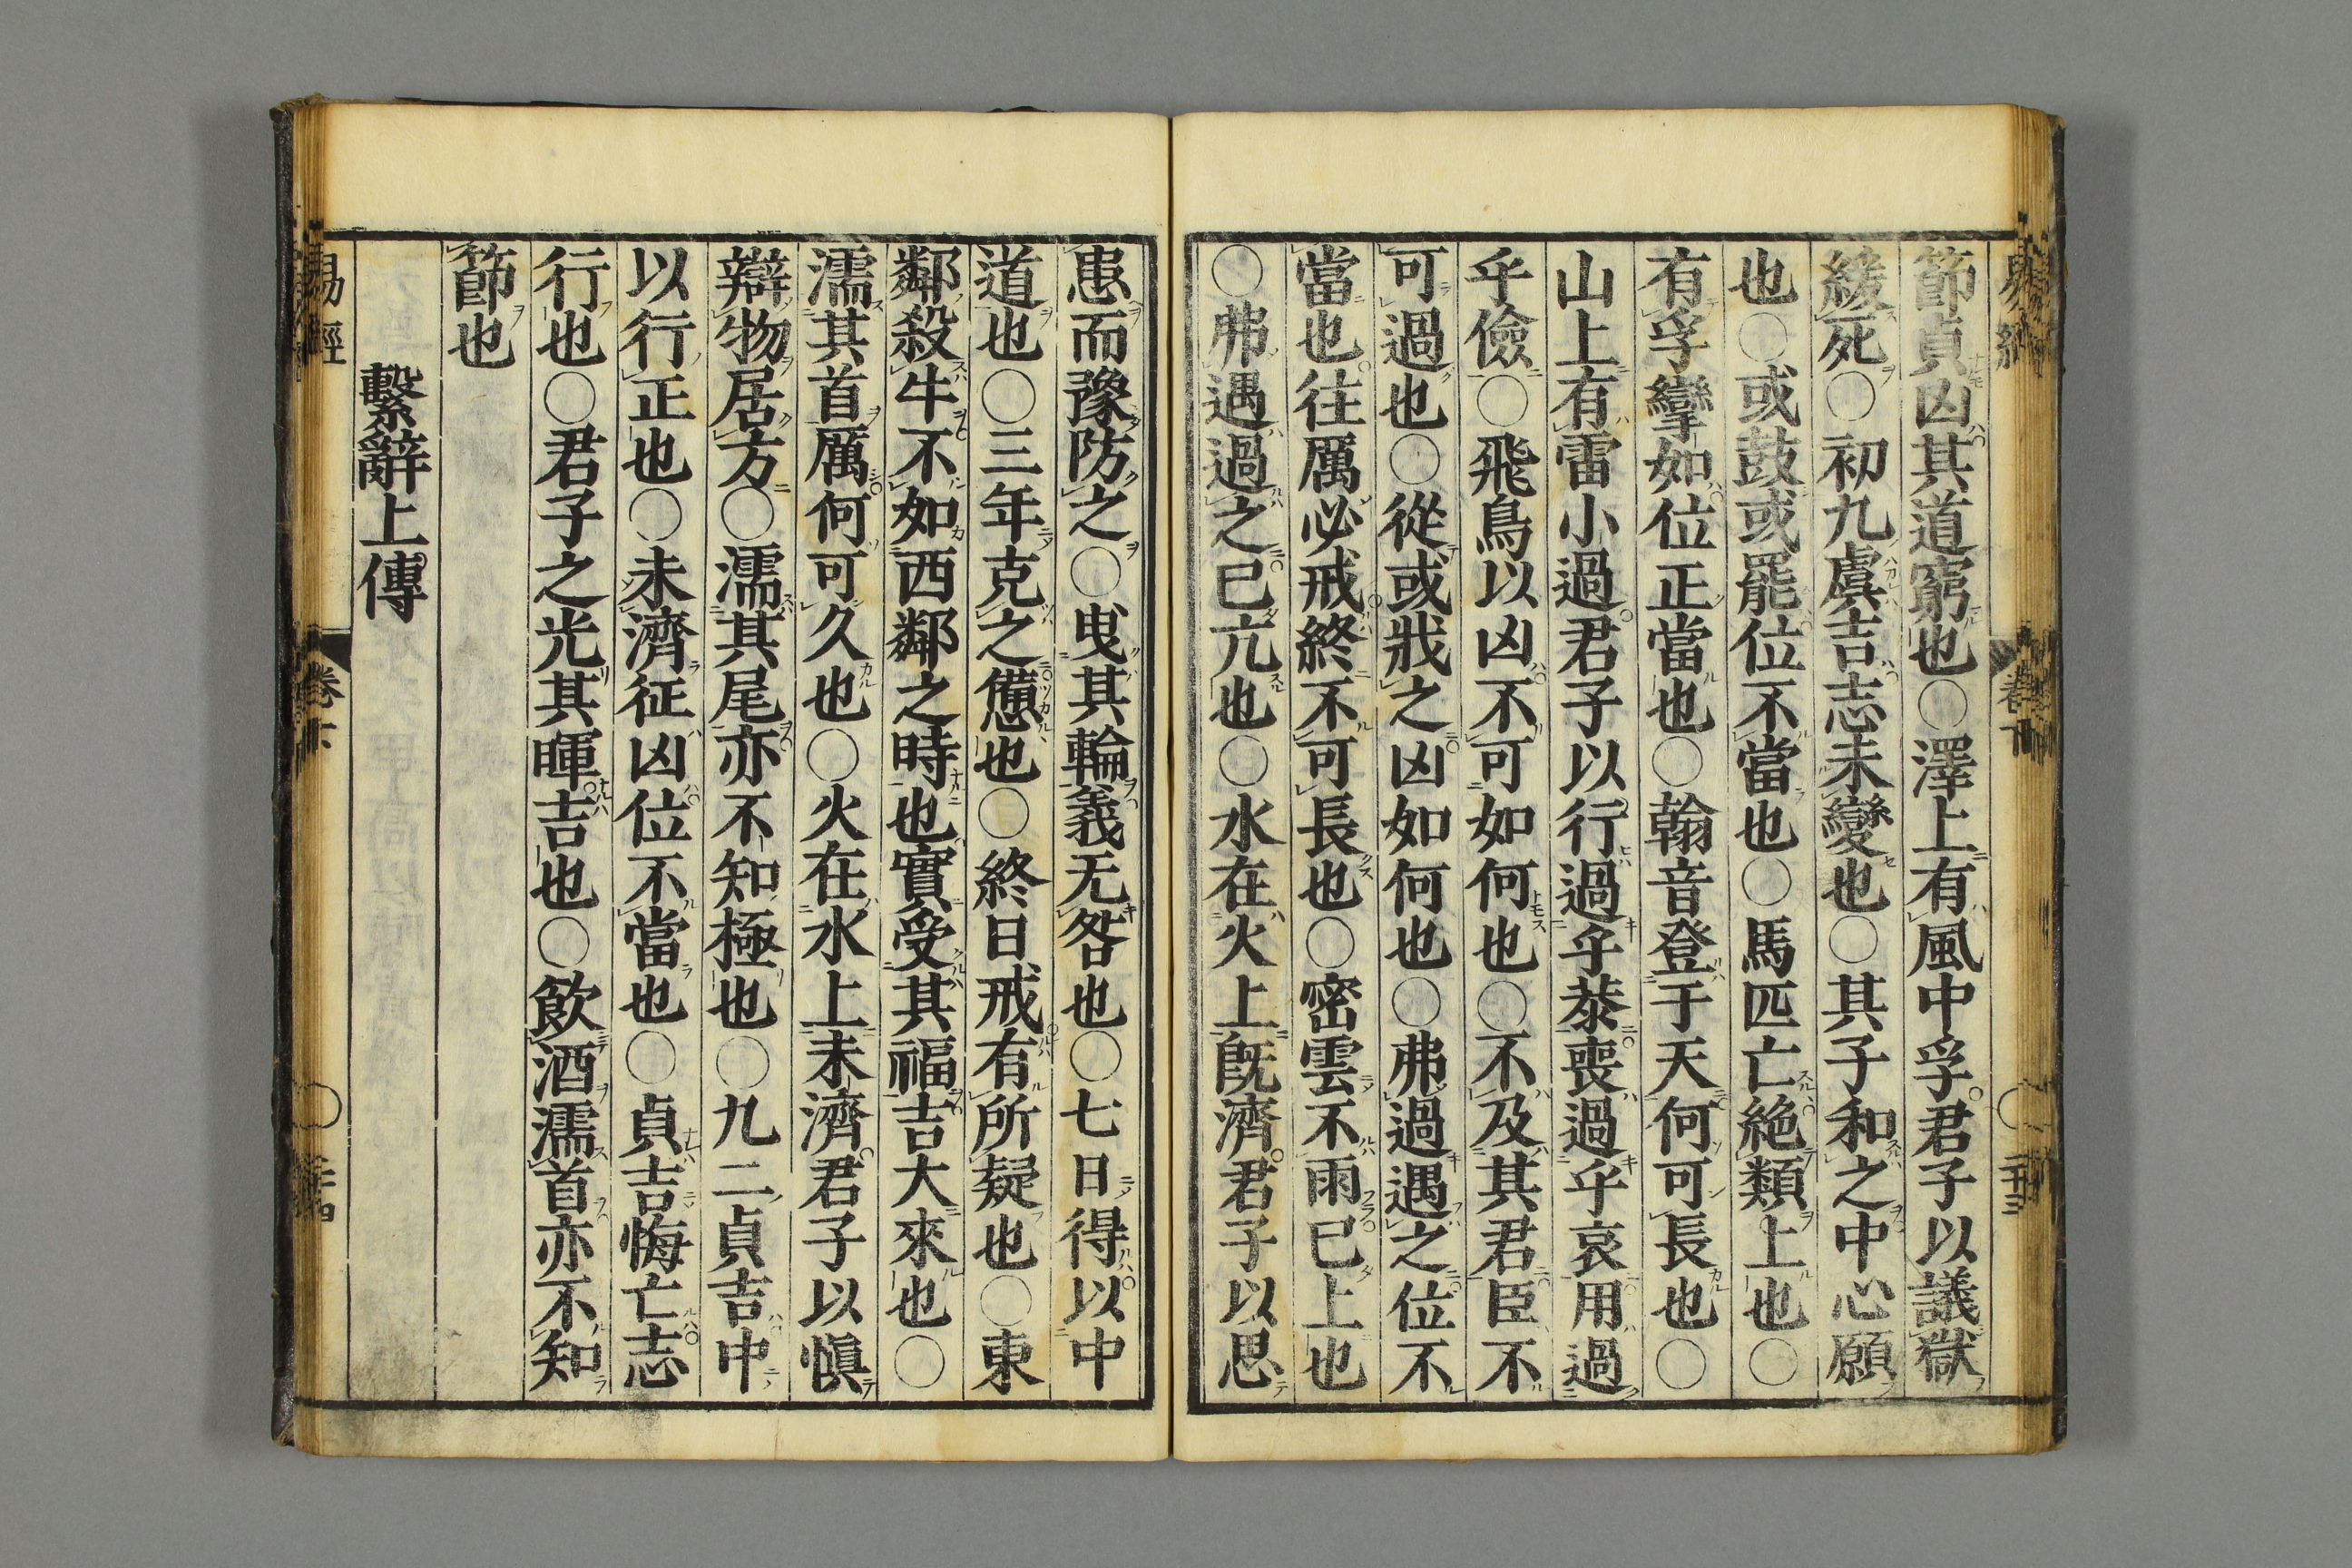 節貞凶其道窮也○澤上有風中孚君子以議獄
緩死○初九虞吉志未變也○其子和之中心願
也○或鼓或罷位不當也○馬匹亡絶類上也○
有孚攣如位正當也○翰音登于天何可長也○
山上有雷小過君子以行過乎恭喪過乎哀用過
乎儉○飛鳥以凶不可如何也○不及其君臣不
可過也○從或戕之凶如何也○弗過遇之位不
當也往厲必戒終不可長也○密雲不雨已上也
○弗遇過之已亢也○水在火上既濟君子以思
患而豫防之○曳其輪義无咎也○七日得以中
道也○三年克之憊也○終日戒有所疑也○東
鄰殺牛不如西鄰之時也實受其福吉大來也○
濡其首厲何可久也○火在水上未濟君子以愼
辯物居方○濡其尾亦不知極也○九二貞吉中
以行正也○未濟征凶位不當也○貞吉悔亡志
行也○君子之光其暉吉也○飲酒濡首亦不知
節也
繫辭上傳
易經 卷下